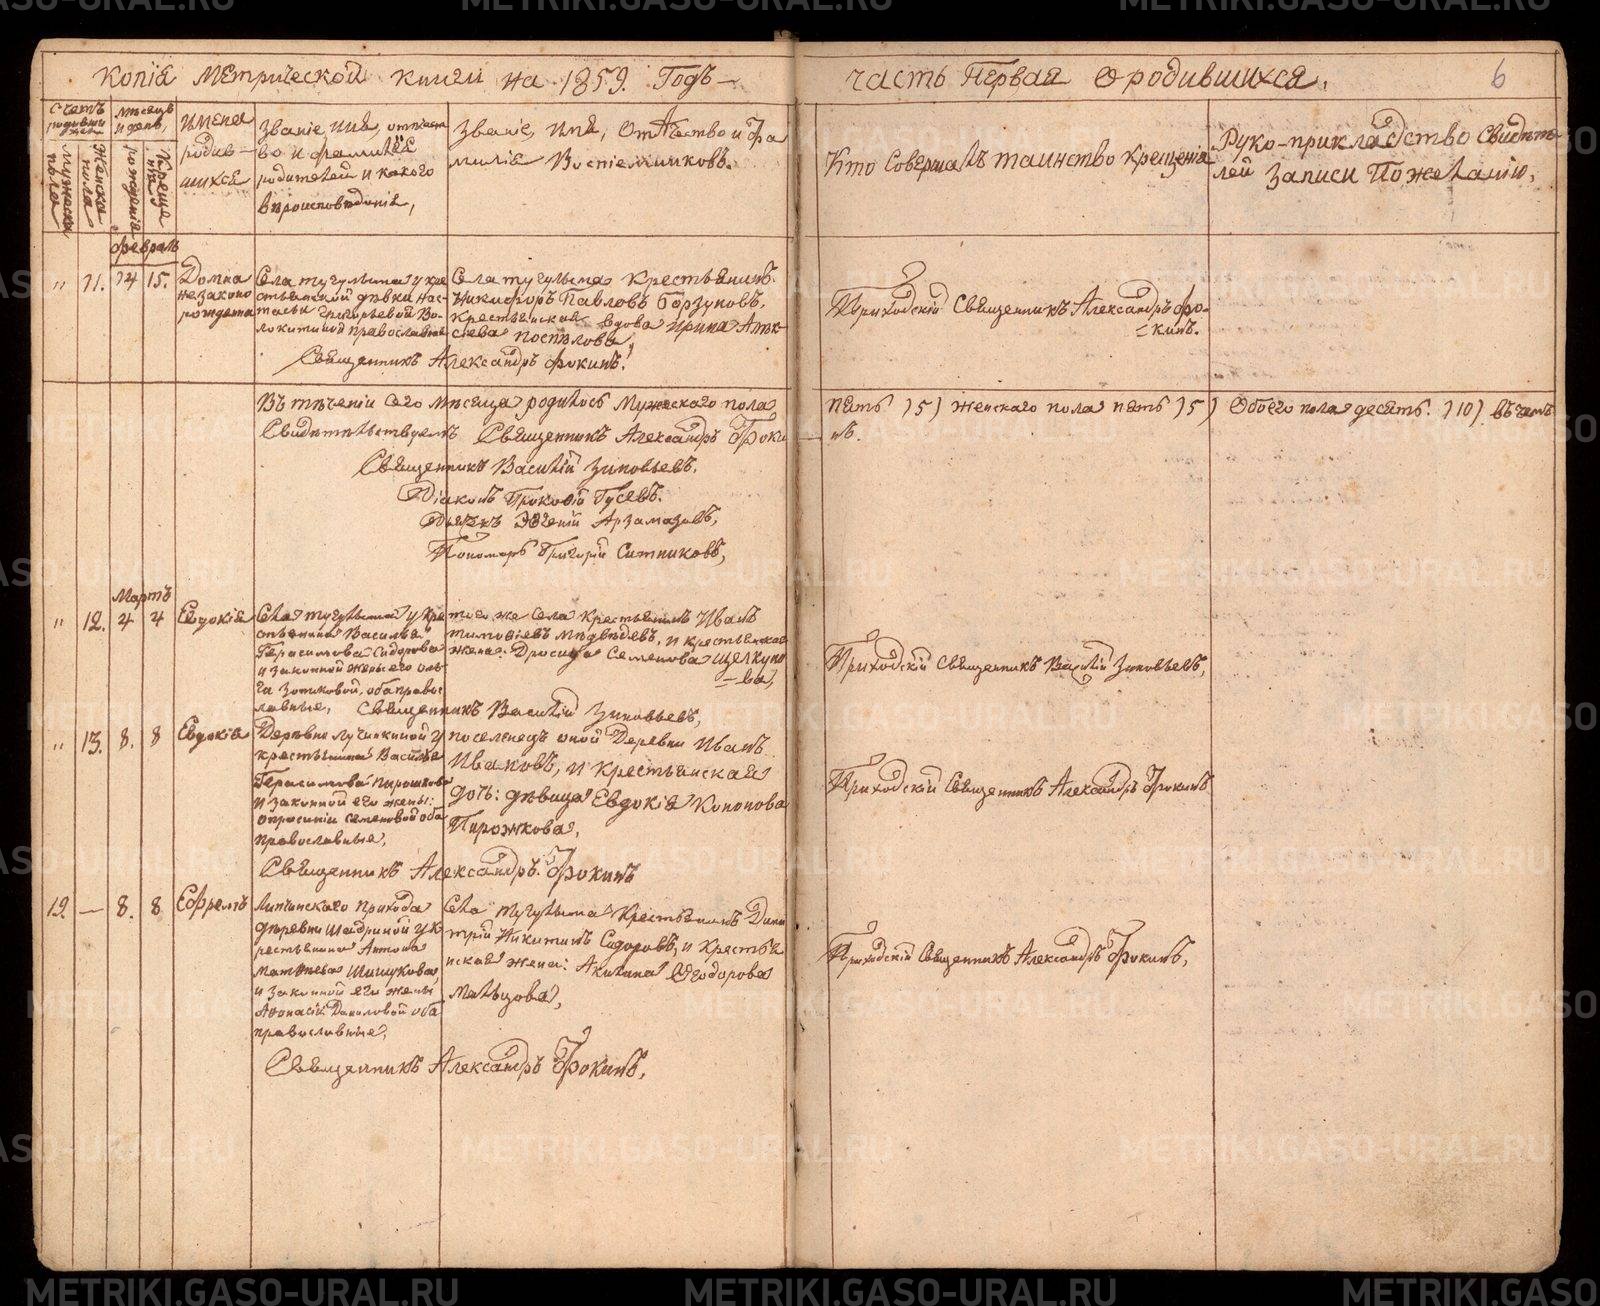 Копія Метрической книги на 1859. Годъ —
часть Первая о родившихся.
6
Счетъ
Мужеска пола
Женска пола
Мѣсяцъ и день,
рожденія
Креще нія
имена родив— шихся
Званіе, имя, отчест
во и фамилія
родителей и какого
вѣроисповѣданія,
Званіе, имя, отчество и фа
милія Воспріемниковъ.
Кто Совершалъ таинство Крещенія
Руко-прикладство Свидѣте
лей записи По желанію,
февраль
" 11. 14 15. Домна
незаконо
рожденна
Села тугулыма у кре
стьянской дѣвки нас-
тасьи григорьевой Во-
локитиной православной
Села тугулыма Крестьянинъ
Никифоръ Павловъ Горзуновъ,
Крестьянская вдова Ирина Алек-
сѣева Поспѣлова,
Священникъ Александръ Фокинъ.
Приходскій Священникъ Александръ Фо-
кинъ.
Въ теченіи Сего Мѣсяца родилось Мужескаго пола
пять )5) женскаго пола пять )5) Обоего пола десять. )10). въ чемъ
Свидѣтельствуемъ Священникъ Александръ Фоки
нъ.
Священникъ Василій Зиновьевъ.
Діаконъ Прокопій Гусевъ.
Дьячекъ Евгеній Арзамазовъ,
Пономарь Григорій Ситниковъ,
Мартъ
" 12. 4 4 Евдокія
Села тугулыма у кре
стьянина Василья
Герасимова Сидорова
и законной жены его оль-
ги Зотиковой, оба право-
славные,
того же Села Крестьянинъ Иванъ
тимофіевъ Медвѣдевъ, и крестьянская
жена: Дросида Семенова Щелкуно
— ва,
Священникъ Василій Зиновьевъ,
Приходскій Священникъ Василій Зиновьевъ,
" 13. 8. 8 Евдокія
Деревни лучинкиной у
крестьянина Василья
Герасимова Пирошкова
и законной его жены:
Опросиніи Семеновой оба
православные,
поселенецъ оной Деревни Иванъ
Иваковъ, и Крестьянская
дочь: дѣвица Евдокія Кононова
Пирожкова,
Священникъ Александръ. Фокинъ
Приходскій Священникъ Александръ Фокинъ
12. — 8. 8 Ефремъ
Липчинскаго прихода
деревни Шадриной у к
рестьянина Антона
Матвѣева Шишукова,
и законной его жены
Афонасіи Даниловой оба
православные,
Села тугулыма Крестьянинъ Дими
трій Никитинъ Сидоровъ, и Крестья
нская жена: Акилина Ѳеодорова
Мальцова,
Священникъ Александръ Фокинъ,
Приходскій Священникъ Александръ Фокинъ,
METRIKI.GASO-URAL.RU